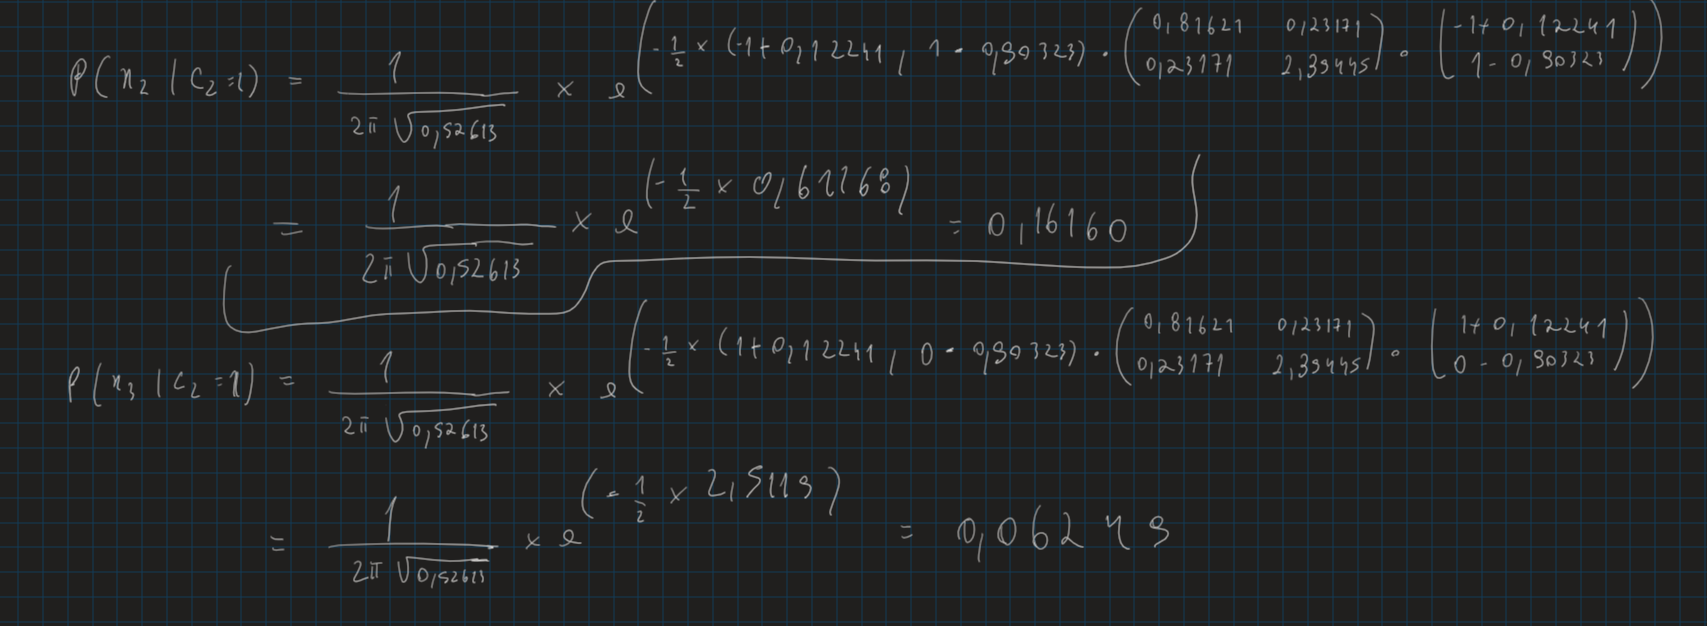 P(x₂ | C₂=1) = 1 / (2π √0,52613) × e^(-1/2 × (-1+0,12241, 1-0,90323) · (0,81621 0,23171 ; 0,23171 2,39445) · (-1+0,12241 ; 1-0,90323))
= 1 / (2π √0,52613) × e^(-1/2 × 0,61168) = 0,16160
P(x₃ | C₂=1) = 1 / (2π √0,52613) × e^(-1/2 × (1+0,12241, 0-0,90323) · (0,81621 0,23171 ; 0,23171 2,39445) · (1+0,12241 ; 0-0,90323))
= 1 / (2π √0,52613) × e^(-1/2 × 2,5119) = 0,06249